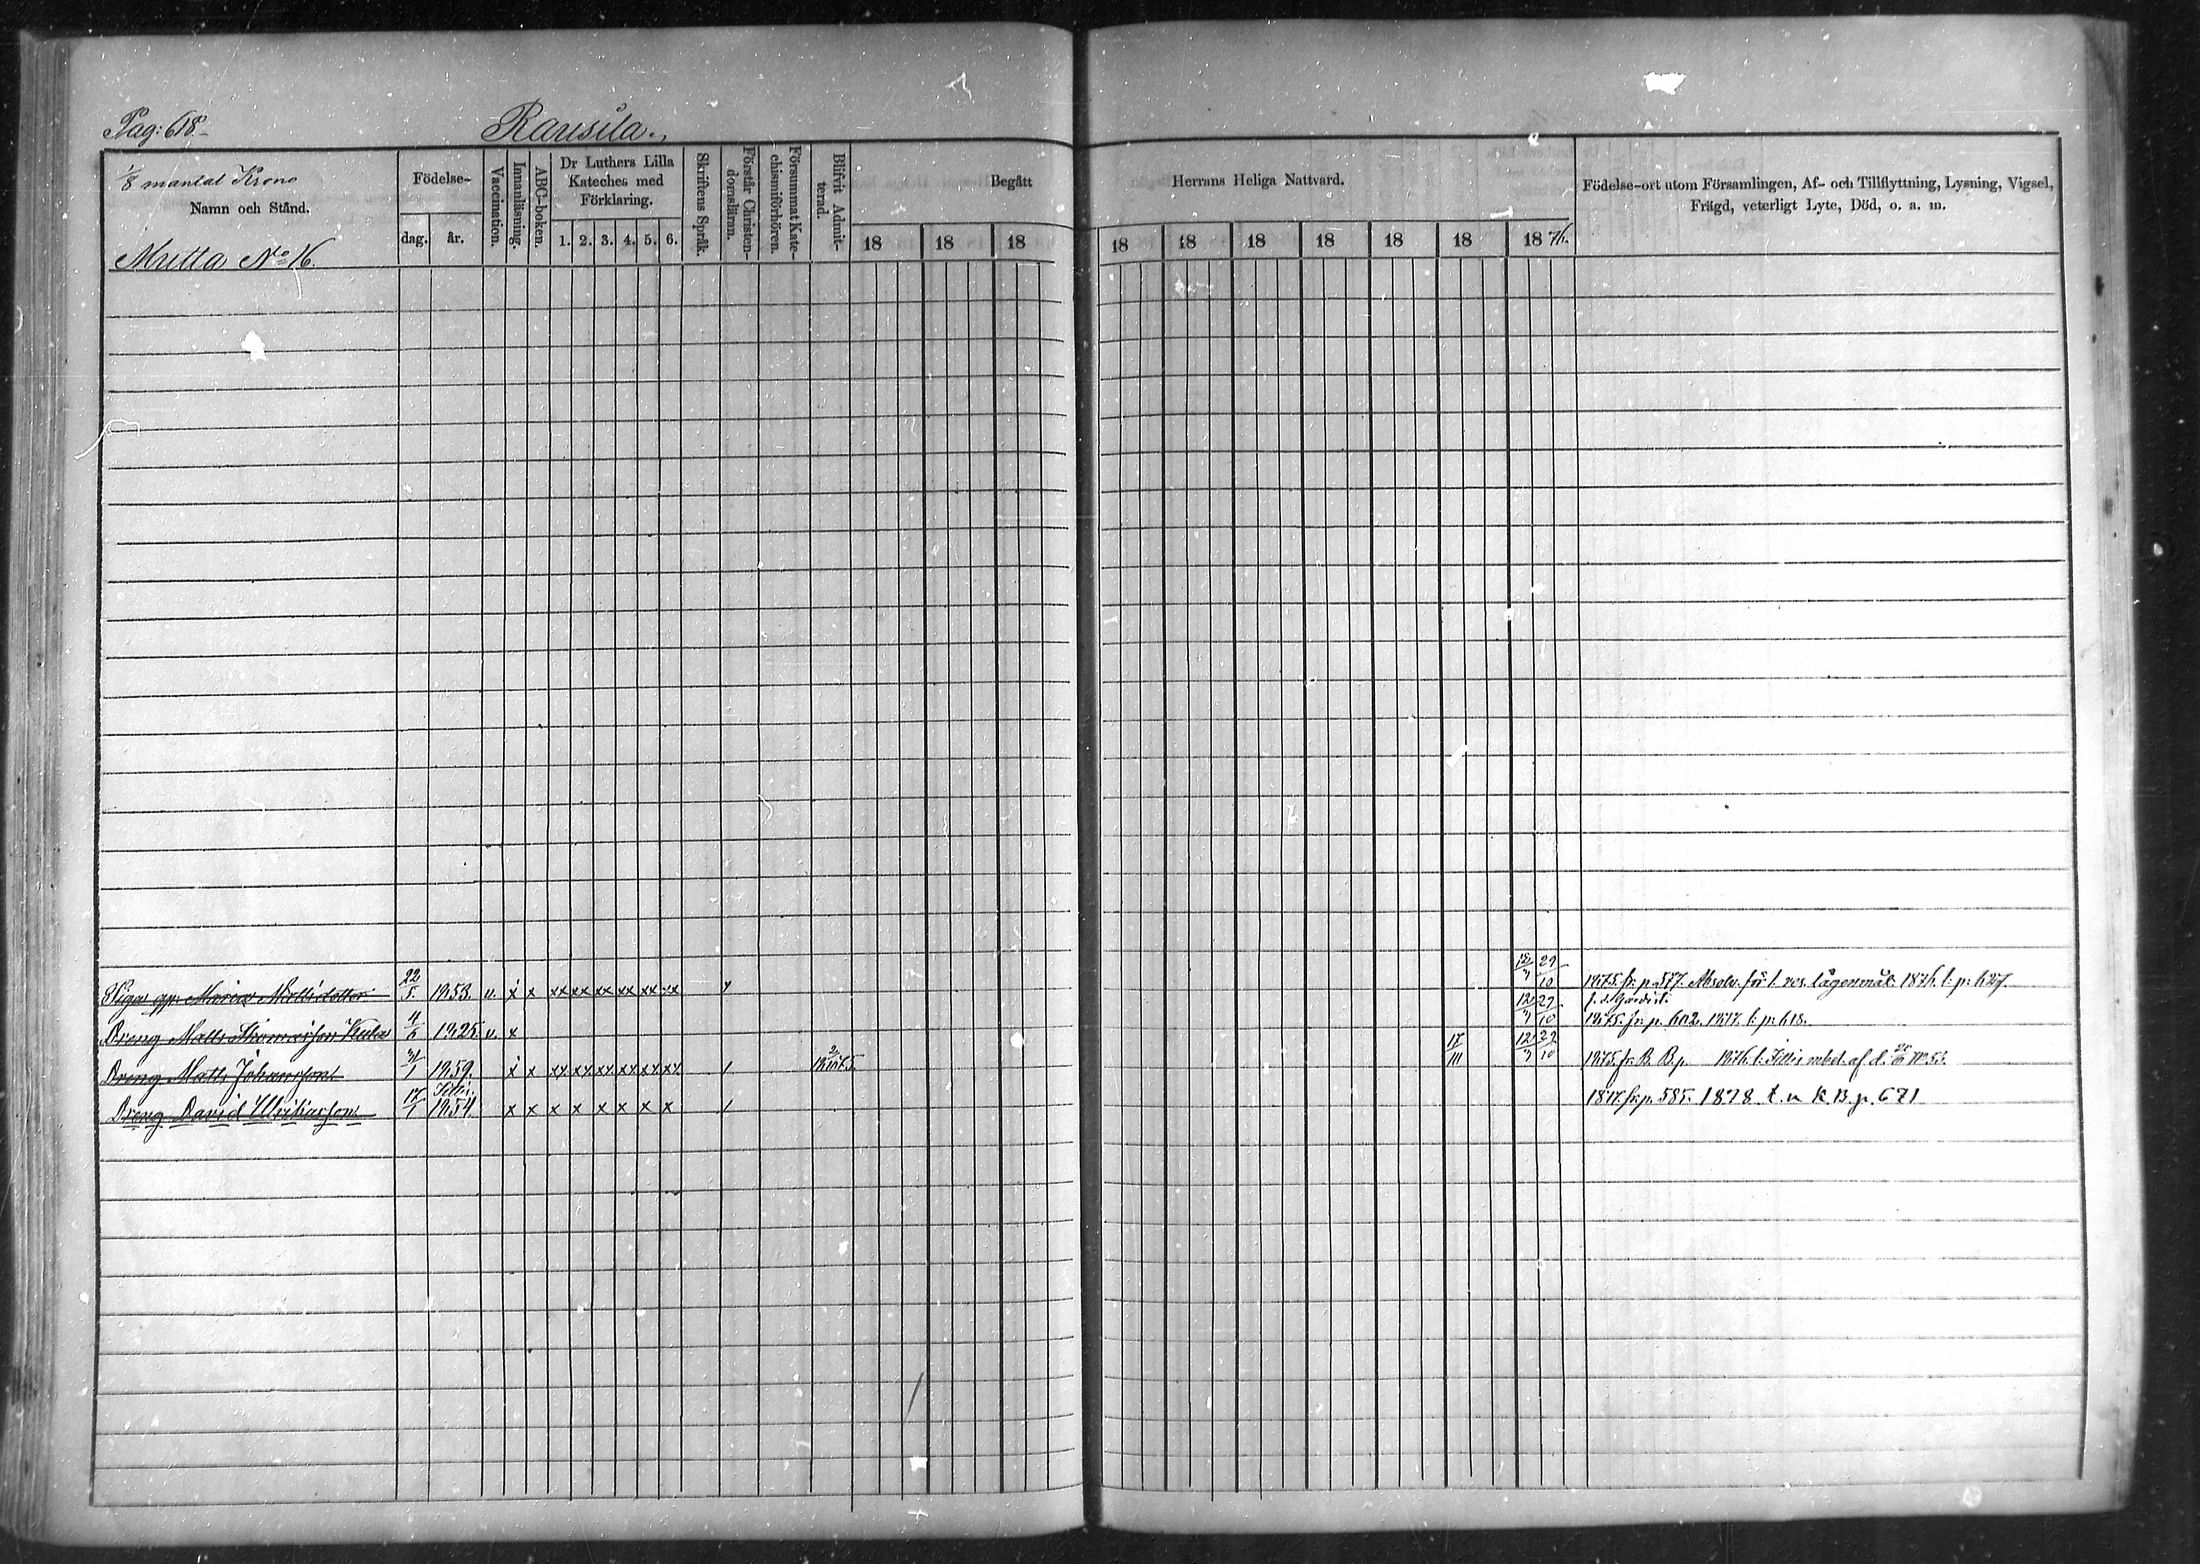 Pag: 618
Rausila.
1/8 mantal Krono
Namn och Stånd.
Mutta No 16.
Födelse-
dag. år.
Vaccination.
Innanläsning.
ABC-boken.
Dr Luthers Lilla
Kateches med
Förklaring.
1. 2. 3. 4. 5. 6.
Skriftens Språk.
Förstår Christen-
domslärnn.
Försummat Kate-
chismiförhören.
Blifvit Admit-
terad.
Begått
18 18 18
Herrans Heliga Nattvard.
18 18 18 18 18 18 1876.
Födelse-ort utom Församlingen, Af- och Tillflyttning, Lysning, Vigsel,
Frägd, veterligt Lyte, Död, o. a. m.
Piga Maria Mattsdotter 22/5 1853. v. x x xx xx xx xx xx xx 29/10 1875. fr. p. 577. Absolv. för l. res. lägersmål. 1876. t. p. 627.
Dreng Matts Thomasson 4/ 1825. v. x 29/10 1875. fr. p. 602. 1877. t. p. 618.
Dreng Matts Johansson 31/1 1859. x x xx xx xx xx xx xx / 17/III 29/10 1875. fr. B. B. p. 1876. t. Tillis
Dreng David 17/1 1854. x x x x x x x x / 1877. fr. p. 585. 1878 t. n K. B. p. 671